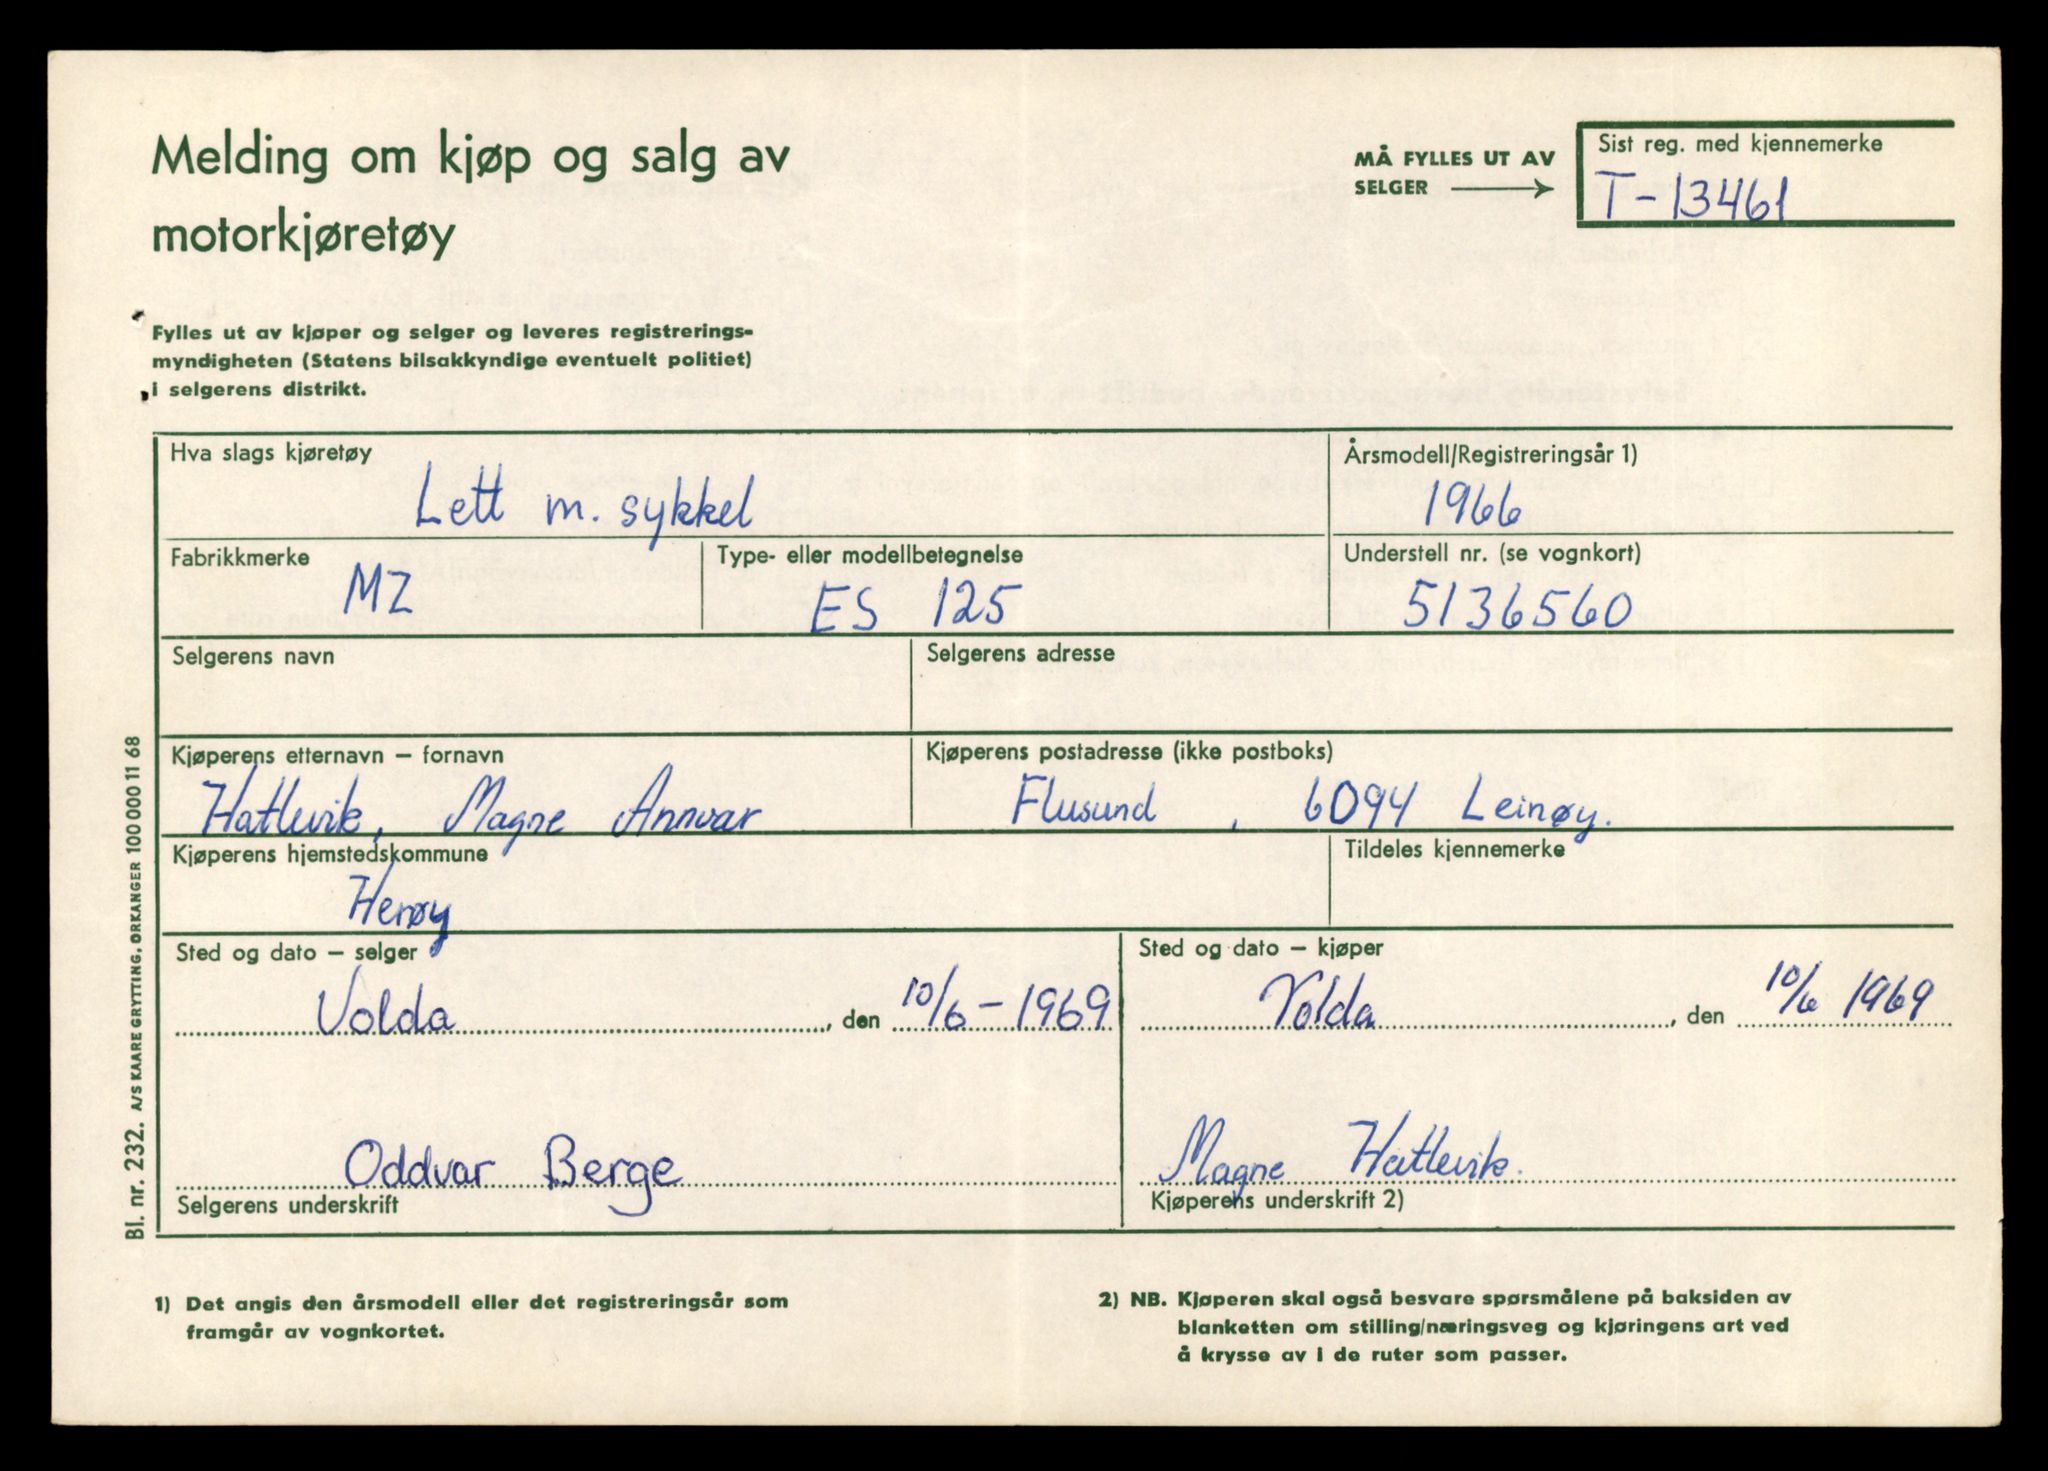 Melding om kjøp og salg av
motorkjøretøy
MÅ FYLLES UT AV
SELGER
Sist reg. med kjennemerke
T-13461
Fylles ut av kjøper og selger og leveres registrerings-
myndigheten (Statens bilsakkyndige eventuelt politiet)
i selgerens distrikt.
Hva slags kjøretøy
Lett m. sykkel
Årsmodell/Registreringsår 1)
1966
Fabrikkmerke
MZ
Type- eller modellbetegnelse
ES 125
Understell nr. (se vognkort)
5136560
Selgerens navn
Selgerens adresse
Kjøperens etternavn – fornavn
Hatlevik, Magne Annvar
Kjøperens postadresse (ikke postboks)
Flusund, 6094 Leinøy.
Kjøperens hjemstedskommune
Herøy
Tildeles kjennemerke
Sted og dato – selger
Volda, den 10/6-1969
Sted og dato – kjøper
Volda, den 10/6 1969
Oddvar Berge
Selgerens underskrift
Magne Hatlevik.
Kjøperens underskrift 2)
Bl. nr. 232. A/S KAARE GRYTTING, ORKANGER 100 000 11 68
1) Det angis den årsmodell eller det registreringsår som
framgår av vognkortet.
2) NB. Kjøperen skal også besvare spørsmålene på baksiden av
blanketten om stilling/næringsveg og kjøringens art ved
å krysse av i de ruter som passer.